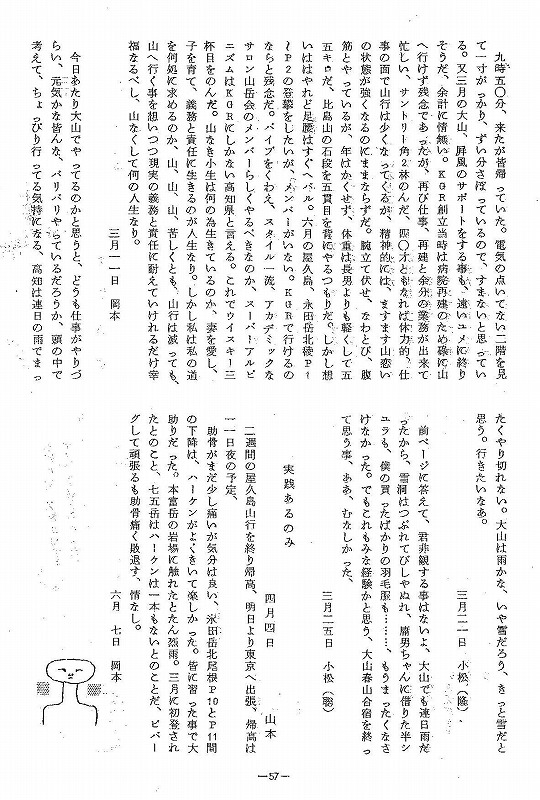 九時五〇分、来たが皆帰っていた。電気の点いてない二階を見
て一寸がっかり、ずい分さぼっているので、すまないと思ってい
る。又三月の大山、屏風のサポートをする事も、遠いユメに終り
そうだ、余計に情無い。KGR創立当時は病院再建のため碌に山
へ行けず残念であったが、再び仕事、再建と余分の業務が出来て
忙しい、サントリー角2杯のんだ。四〇才ともなれば体力的、仕
事の面で山行は少くなってくるが、精神的には、ますます山恋い
の状態が強くなるのにままならずだ。腕立て伏せ、なわとび、腹
筋とやっているが、年はかくせず、体重は長男よりも軽くして五
五キロだ、比島山の石段を五貫目を背にやるつもりだ。しかし想
いははやれど足腰はすぐへバル。六月の屋久島、永田岳北稜P1
〜P2の登攀をしたいが、メンバーがいない。KGRで行けるの
ならと残念だ。パイプをくわえ、スタイル一流、アカデミックな
サロン山岳会のメンバーらしくやるべきなのか、スーパーアルピ
ニズムはKGRにしかない高知県と言える。これでウイスキー三
杯目をのんだ。山なき小生は何の為生きているのか、妻を愛し、
子を育て、義務と責任に生きるのが人生なり。しかし私は私の道
を何処に求めるのか、山、山、山、苦しくとも、山行は減っても、
山へ行く事を想いつつ現実の義務と責任に耐えていけれるだけ幸
福なるべし、山なくして何の人生なり。
三月一一日　岡本
今日あたり大山でやってるのかと思うと、どうも仕事がやりづ
らい、元気かな皆んな、バリバリやっているだろうか、頭の中で
考えて、ちょっぴり行ってる気持になる、高知は連日の雨でまっ
たくやり切れない。大山は雨かな、いや雪だろう、きっと雪だと
思う。行きたいなあ。
三月二一日　小松（隆）
前ページに答えて、君非観する事はないよ、大山でも連日雨だ
ったから、雪洞はつぶれてびしゃぬれ、庸男ちゃんに借りた半シ
ュラも、僕の買ったばかりの羽毛服も……、もうまったくなさ
けなかった。でもこれもみな経験かと思う、大山春山合宿を終っ
て思う事、ああ、むなしかった。
三月二五日　小松
実践あるのみ
四月四日　山本
二週間の屋久島山行を終り帰高、明日より東京へ出張、帰高は
一一日夜の予定、
助骨がまだ少し痛いが気分は良い、永田岳北尾根P10とP11間
の下降は、ハーケンがよくきいて楽しかった。皆に習った事で大
助りだった。本富岳の岩場に触れたとたん烈雨。三月に初登され
たとのこと、七五岳はハーケンは一本もないとのことだ、ビバー
グして頑張るも助骨痛く敗退す、情なし。
六月　七日　岡本
—57—